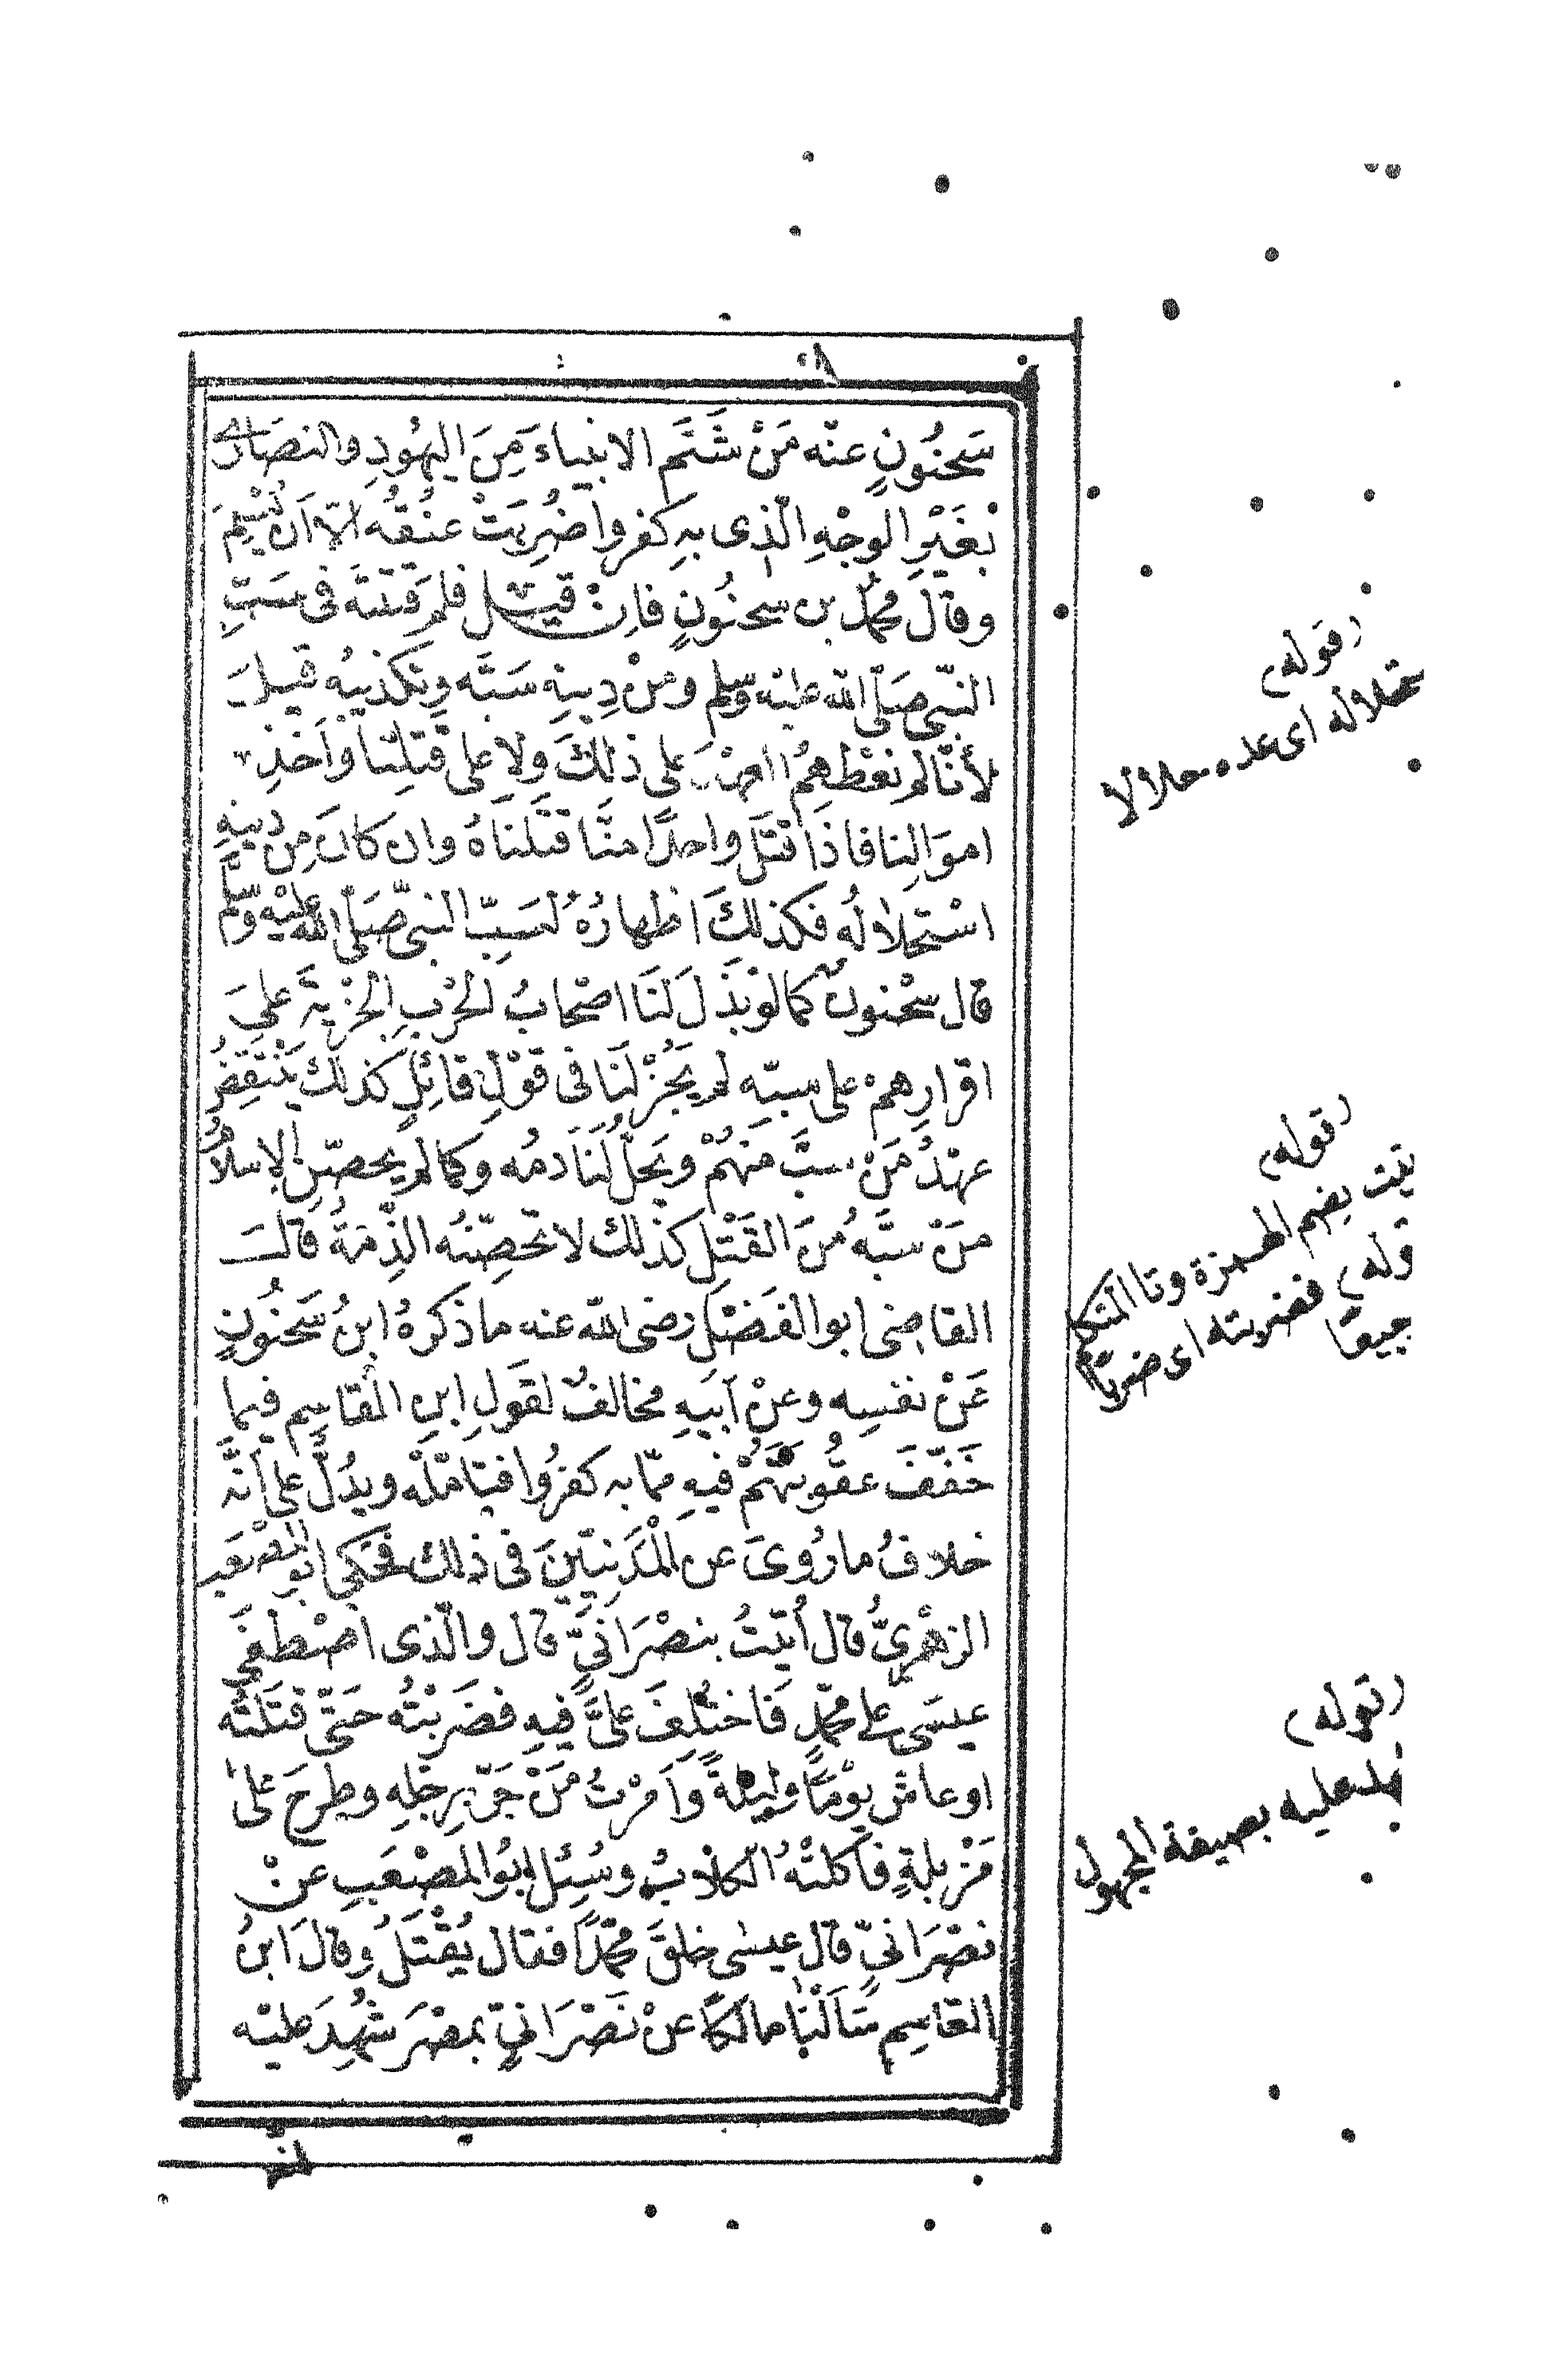 سَحنُونٍ عنه مَنْ شَتَم الانبياءَ مِنَ اليهُودِ والنصَارى
بغَيْرِ الوجْهِ الّذى بهِ كفروا ضُرِبَتْ عنُقُه الّا اَن يُسْلِمَ
وقالَ محمّد بن سحنُونٍ فاِنْ قيل فلم قتلته فى سَبّ
النّبى صَلّى الله عليه وسلم ومنْ دِينِهِ سَبّه وتكذيبُه قيلَ
لأنّا لم نعْطهمُ العهْدَ على ذلكَ ولا على قَتلِنا وأخذِ
اموَالِنا فاذا قتَلَ واحدًا منّا قتَلنَاهُ وان كانَ مِن دينِهِ
اسْتحلالُه فكذلكَ اظهارُهُ لسَبّ النبىّ صَلى الله عليْه وسلّم
قال سحْنون كما لو بَذَلَ لَنَا اصْحابُ الحَرْبِ الجزْيةَ علىَ
اقرارِهمْ على سبّه لم يَجُزْ لَنَا فى قوْلِ قائِلٍ كذلك يَنْتقِضُ
عهْدُ مَنْ سبَّ منهُمْ ويَحلّ لَنَا دمُه وكما لم يحصّنِ الاِسلامُ
منْ سبَّهُ منَ القَتْلِ كذلك لا تحصِّنُه الذِّمَةُ قالَ
القاضى ابو الفَضْل رضى الله عنه ما ذكرهُ ابنُ سَحنُونٍ
عَنْ نفسِه وعنْ اَبيهِ مخالفٌ لقَولِ ابنِ القاسِم فيما
خَفّفَ عقُوبتهُمْ فيهِ ممّا به كفرُوا فتامّلْه ويدُلّ على اَنّه
خلافُ ما رُوىَ عن المَدَنيّينَ فى ذلك فحَكى ابو المصْعَب
الزهْرىُّ قال أُتِيْتُ بنصْرَانىٍّ قال والّذى اصْطفَى
عيسَى على محمّدٍ فَاختُلِفَ علىَّ فيهِ فضَربْتُه حَتّى قتَلتُه
او عاش يوْمًا وليلةً وَاَمرْتُ مَنْ جَرّ برِجْلِهِ وطرحَ علىٰ
مَزْبلةٍ فاَكلتْهُ الكلابُ وسُئل ابُو المصْعَب عنْ
نصْرَانىّ قال عيسٰى خلقَ محمّدًا فقال يُقْتَلُ وقالَ ابنُ
القاسِم سَاَلْنا مالكًا عنْ نَصْرَانىٍّ بمصْرَ شُهِدَ عليْه
(قوله)
ستحلاله اى عده حلالا
(قوله)
تيت بضم الهمزة وتا المتكلم
قوله) فضربته اى ضربًا
جيعًا
(قوله)
هد عليه بصيغة المجهول